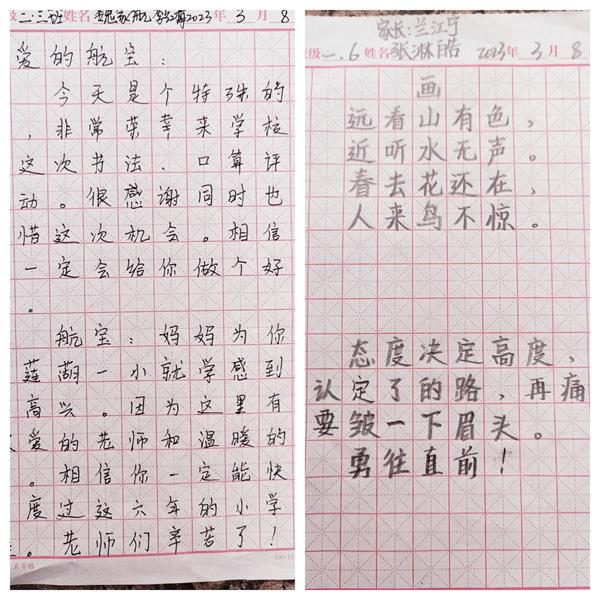 二.三班 姓名 2023年 3月 8
爱的航宝：
今天是个特殊的
，非常荣幸来学校
这次书法、口算评
动。很感谢同时也
惜这次机会。相信
一定会给你做个好
。
航宝：妈妈为你
莲湖一小就学感到
高兴。因为这里有
爱的老师和温暖的
。相信你一定能快
度过这六年的小学
。老师们辛苦了！
家长：兰江宁
班级一.6 姓名张淋皓 2023年 3月 8
画
远看山有色，
近听水无声。
春去花还在，
人来鸟不惊。
态度决定高度，
认定了的路，再痛
要皱一下眉头。
勇往直前！